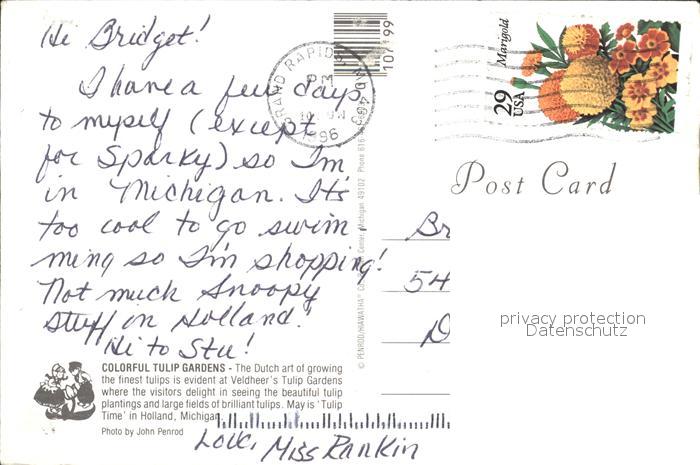 Hi Bridget!
I have a few days
to myself (except
for Sparky) so I'm
in Michigan. It's
too cool to go swim
ming so I'm shopping!
Not much Snoopy
stuff in Holland!
Hi to Stu!
COLORFUL TULIP GARDENS - The Dutch art of growing
the finest tulips is evident at Veldheer's Tulip Gardens
where the visitors delight in seeing the beautiful tulip
plantings and large fields of brilliant tulips. May is 'Tulip
Time' in Holland, Michigan.
Photo by John Penrod
Love, Miss Rankin
GRAND RAPIDS
PM
1996
107199
© PENROD/HIAWATHA Co. Center, Michigan 49102 Phone 616
Marigold
29
USA
Post Card
Br
54
D
privacy protection
Datenschutz